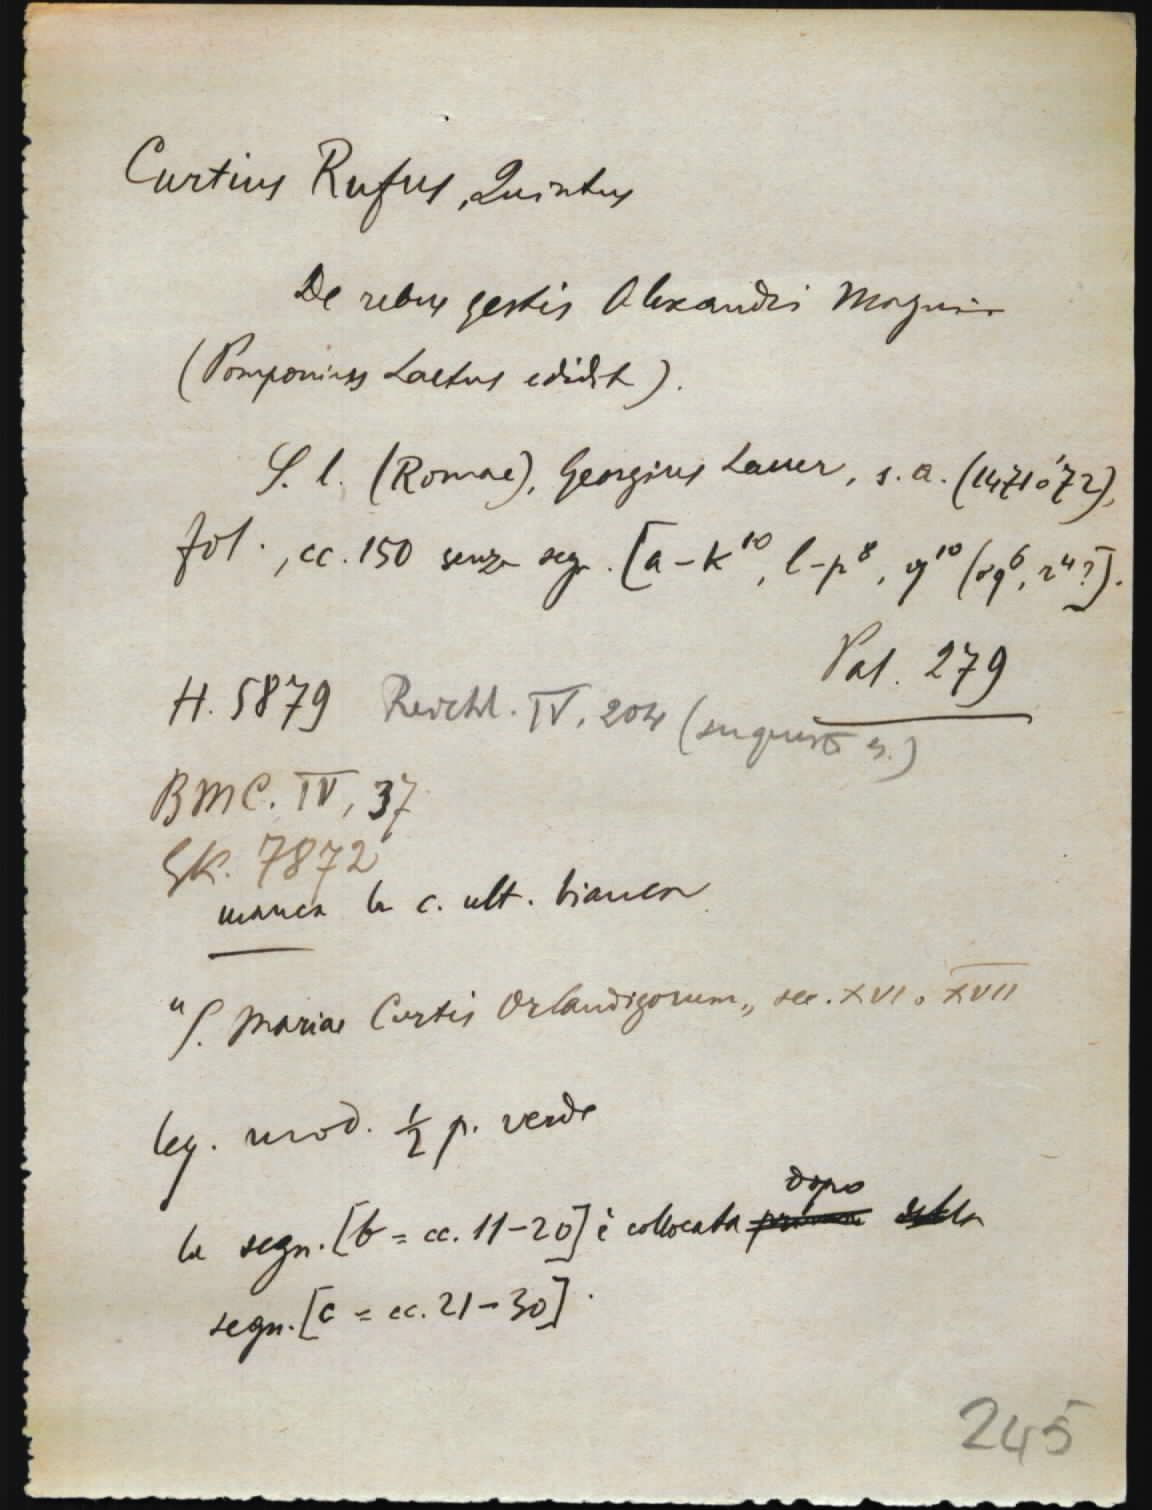 Curtius Rufus, Quintus
De rebus gestis Alexandri Magni
(Pomponius Laetus edidit).
S. l. (Romae), Georgius Lauer, s. a. (1471 o 72),
fol., cc. 150 senza segn. [a-k¹⁰, l-p⁸, q¹⁰ (o q⁶, r⁴?].
Pal. 279
H. 5879 Reichl. IV, 204
BMC. IV, 37
GK. 7872
manca la c. ult. bianca
"S. Mariae Curtis Orlandigorum„ sec. XVI o XVII
leg. mod. ½ p. verde
dopo
la segn. [b = cc. 11-20] è collocata prima
segn. [c = cc. 21-30].
245